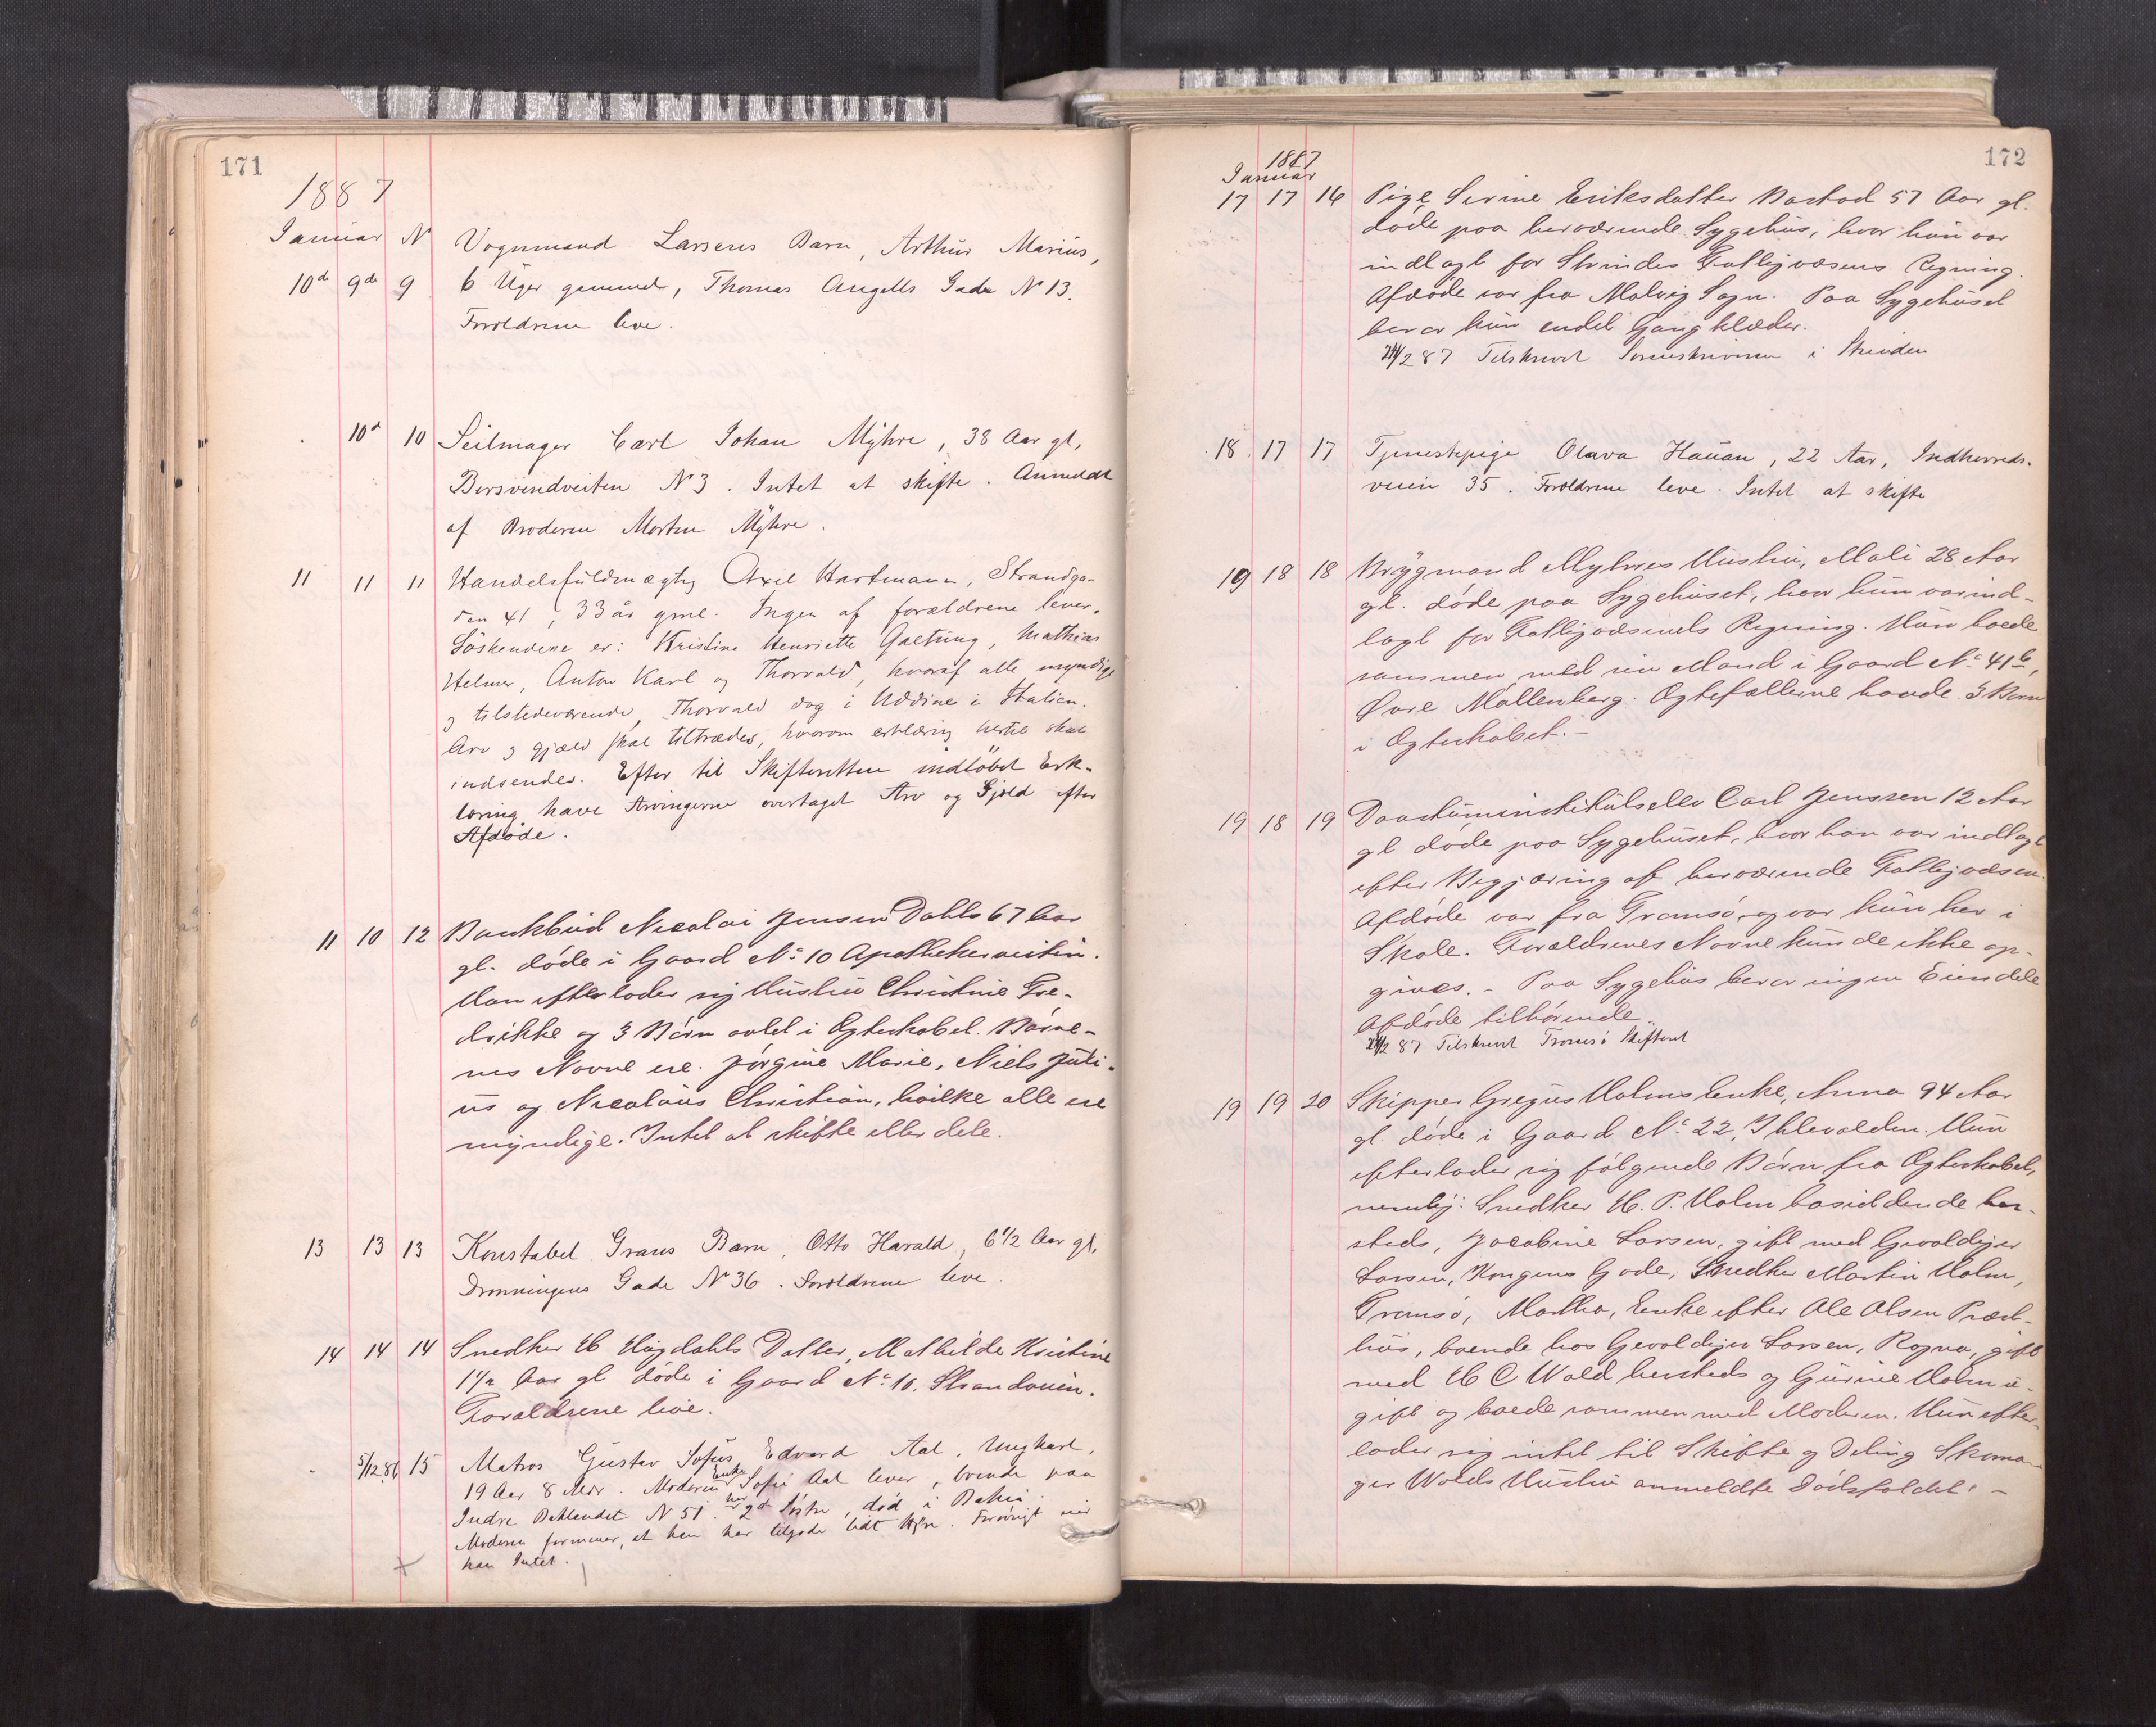 171
1887
Januar N Vognmand Larsens Barn, Arthur Marius,
10de 9de 9 6 Uger gammel, Thomas Angells Gade N 13.
Forældrene leve.
10d 10 Seilmager Carl Johan Myhre, 38 Aar gl,
Bersvendveiten N 3. Intet at skifte. Anmeldt
af Broderen Morten Myhre.
11 11 11 Handelsfuldmægtig Axel Hartmann, Strandga-
den 41, 33 år gml. Ingen af forældrene lever.
Söskendene er: Kristine Henriette Galtung, Mathias
Helmer, Anton Karl og Thorvald, hvoraf alle myndige
og tilstedeværende, Thorvald dog i Uddine i Italien.
Arv og gjæld skal tiltrædes, hvorom erklæring hertil skal
indsendes. Efter til Skifteretten indløbet Erk-
læring have Arvingerne overtaget Arv og Gjæld efter
Afdøde.
11 10 12 Bankbud Nicolai Jensen Dahls 67 Aar
gl. døde i Gaard No 10 Apothekerveiten.
Han efterlader sig Hustru Christine Fre-
drikke og 3 Børn avlet i Ægteskabet. Børne-
nes Navne ere. Jørgine Marie, Niels Juli-
us og Nicolaus Christian, hvilke alle ere
myndige. Intet at skifte eller dele.
13 13 13 Konstabel Grans Barn, Otto Harald, 6 1/2 Aar gl,
Dronningens Gade No 36. Forældrene leve.
14 14 14 Snedker H Høgdahls Datter, Mathilde Kristine
1 1/2 Aar gl døde i Gaard No 10, Strandveien.
Forældrene leve.
5/12 86 15 Matros Gustav Sofus Edvard Aal, Ungkarl,
19 Aar 8 Mdr. Moderen Enke Sofie Aal lever, boende paa
Indre Baklandet N 51. har 2de Søstre, død i Bahia.
Moderen formener, at han har tilgode lidt Hyre. Forøvrigt eier
han Intet.
172
1887
Januar
17 17 16 Pige Sirine Eriksdatter Bastad 57 Aar gl.
døde paa herværende Sygehus, hvor hun var
indlagt for Strindes Fattigvæsens Regning.
Afdøde var fra Malvig Sogn. Paa Sygehuset
beror hun endel Gangklæder.
24/2 87 Tilskrevet Sorenskriveren i Strinden
18 17 17 Tjenestepige Olava Hauan, 22 Aar, Indherreds-
veien 35. Forældrene leve. Intet at skifte
19 18 18 Brygmand Myhres Hustru, Mali 28 Aar
gl. døde paa Sygehuset, hvor hun var ind-
lagt for Fattigvæsenets Regning. Hun boede
sammen med sin Mand i Gaard No 41b,
Øvre Møllenberg. Ægtefællerne havde 3 Børn
i Ægteskabet. -
19 18 19 Døvstuminstitutselev Carl Jenssen 12 Aar
gl døde paa Sygehuset, hvor han var indlagt
efter Begjæring af herværende Fattigvæsen.
Afdøde var fra Tromsø, og var kun her i
Skole. Forældrenes Navne kunde ikke op-
gives. - Paa Sygehus beror ingen Eiendele
Afdøde tilhørende.
24/2 87 Tilskrevet Tromsø Skifteret
19 19 20 Skipper Gregus Holms Enke, Anna 94 Aar
gl. døde i Gaard No 22, Ihlevolden. Hun
efterlader sig følgende Børn fra Ægteskabet,
nemlig: Snedker H. P. Holm bosiddende her-
steds, Jacobine Larsen, gift med Gevaldiger
Larsen, Kongens Gade, Snedker Martin Holm,
Tromsø, Martha, Enke efter Ole Olsen Præst-
hus, boende hos Gevaldiger Larsen, Ragna, gift
med H C Wold hersteds og Gurine Holm u-
gift og boede sammen med Moderen. Hun efter-
lader sig intet til Skifte og Deling Skoma-
ger Wolds Hustru anmeldte Dødsfaldet. -